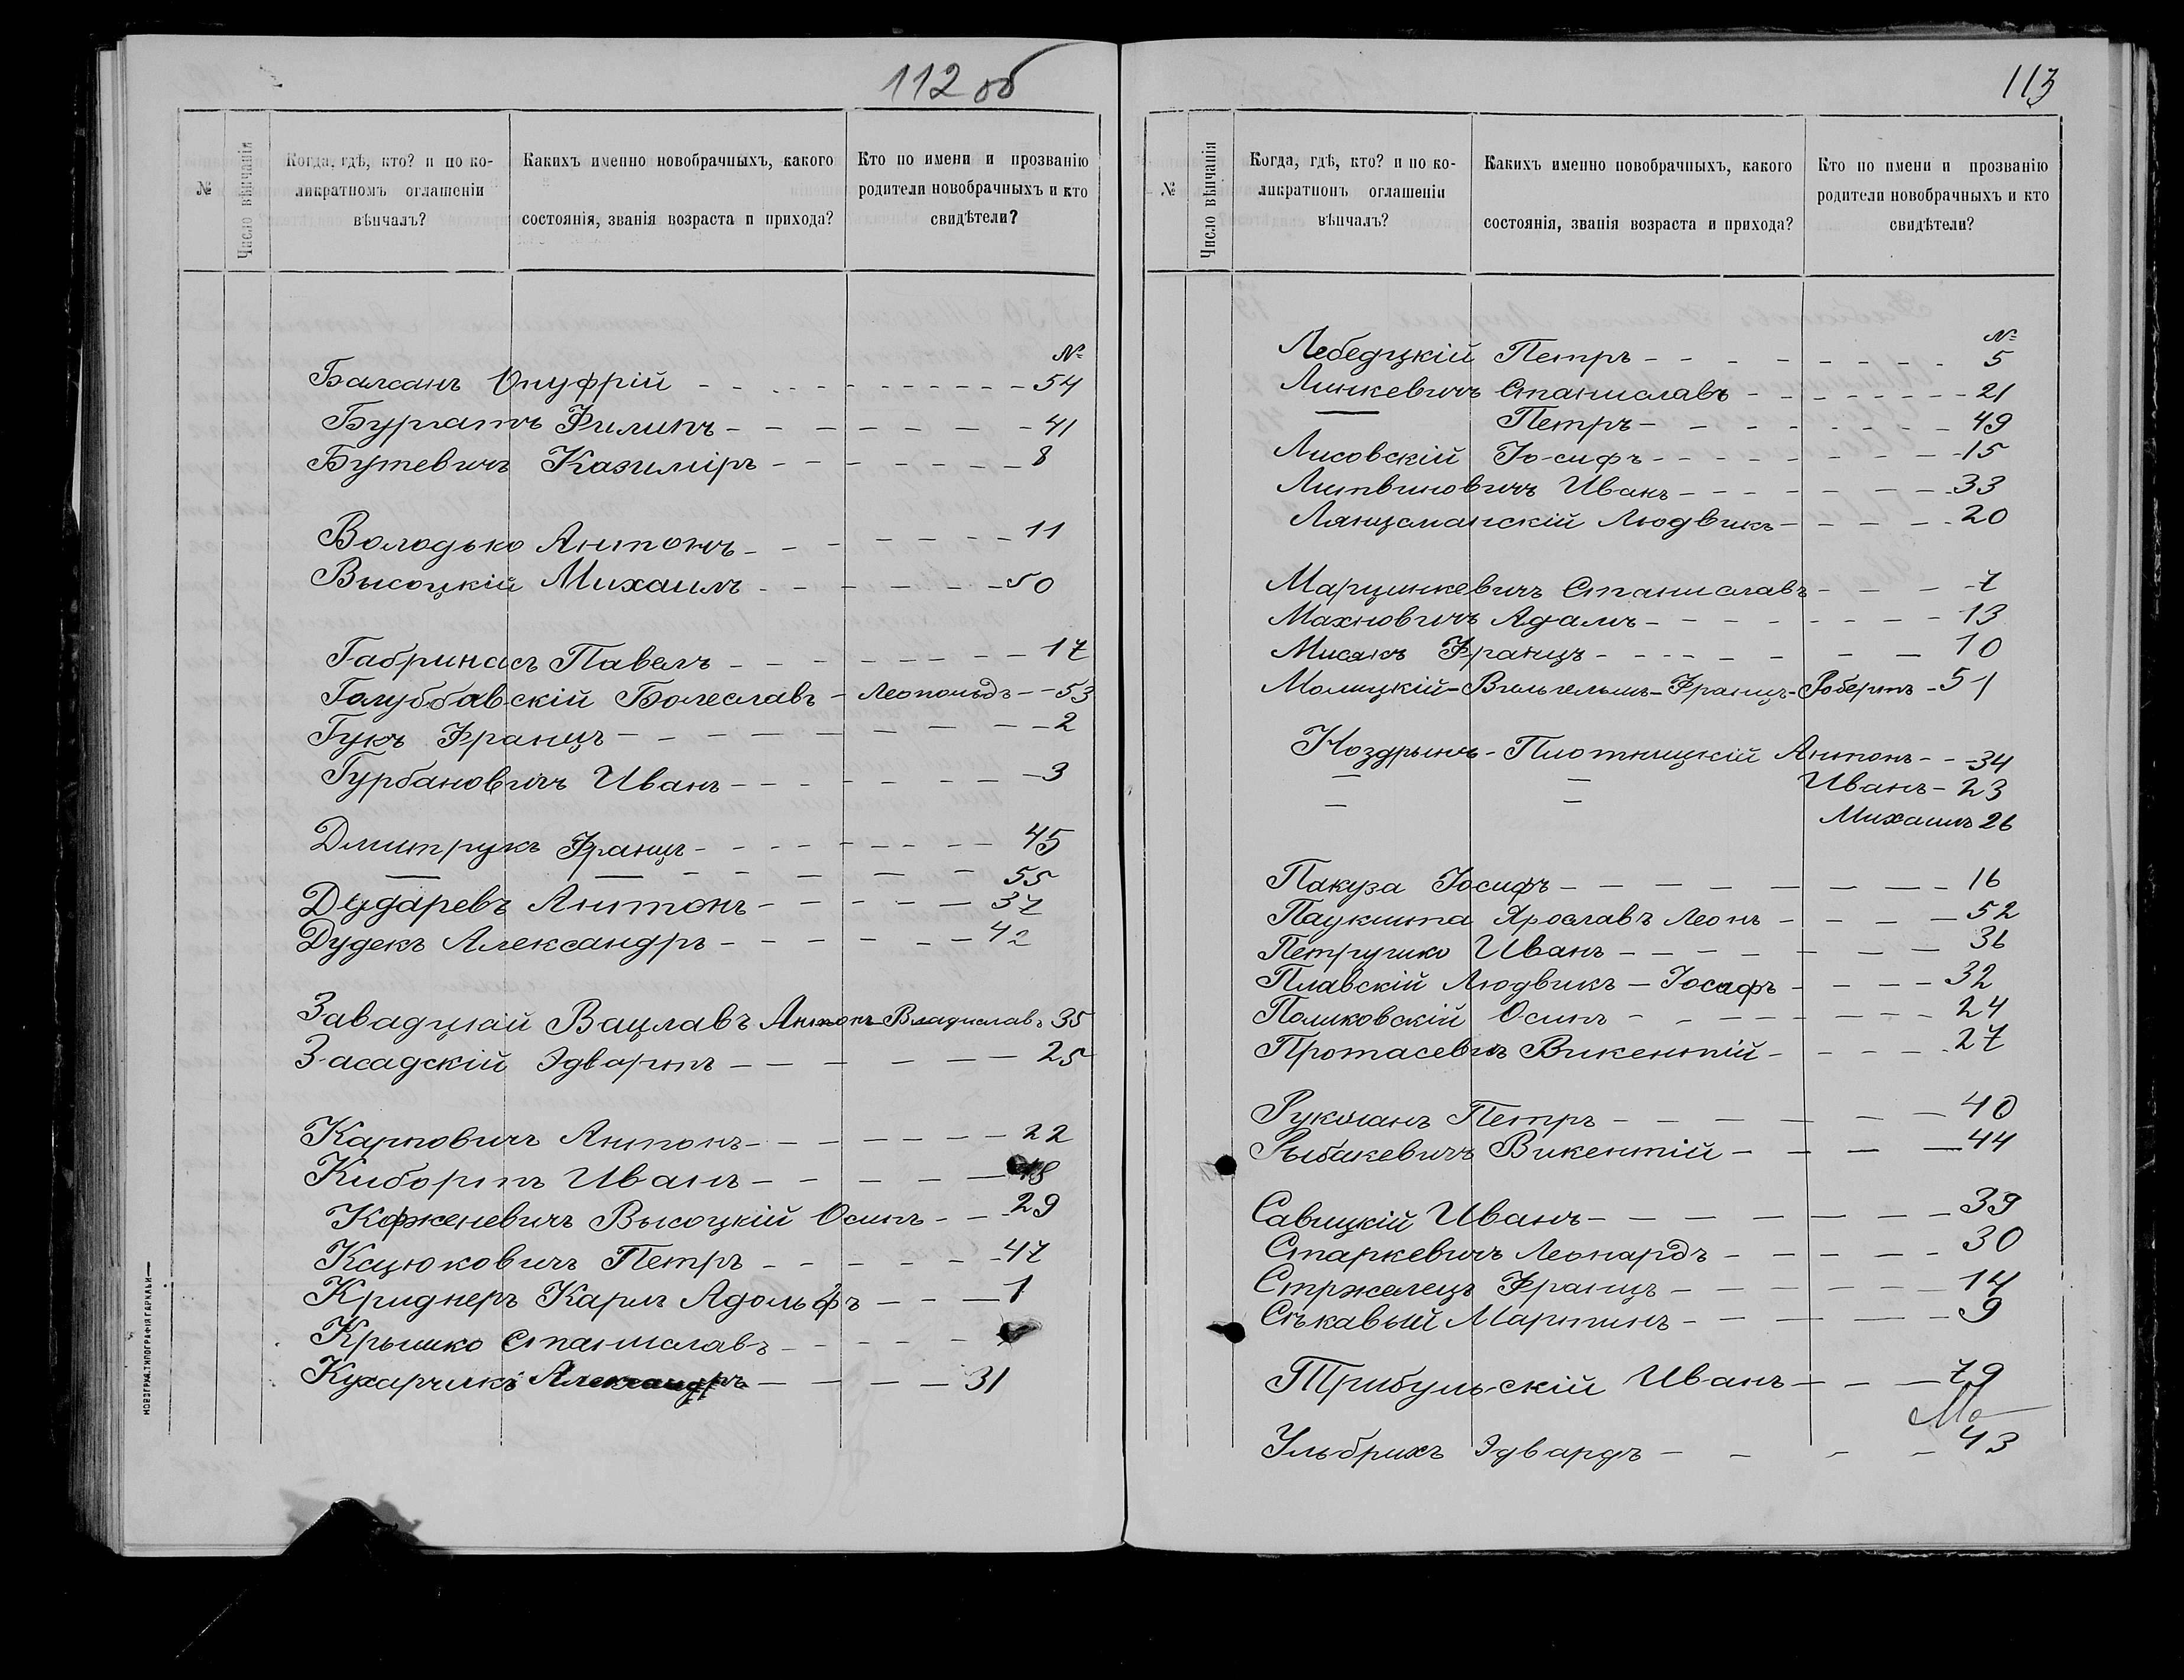 112 об
№
Число вѣнчанія
Когда, гдѣ, кто? и по ко-
ликратномъ оглашеніи
вѣнчалъ?
Какихъ именно новобрачныхъ, какого
состоянія, званія возраста и прихода?
Кто по имени и прозванію
родители новобрачныхъ и кто
свидѣтели?
№
Балсанъ Онуфрій - - - 54
Бургатъ Филипъ - - - 41
Бутевичъ Казиміръ - - - 8
Володько Антонъ - - - 11
Высоцкій Михаилъ - - - 50
Габринасъ Павелъ - - - 17
Голуббавскій Болеславъ - Леопольдъ - - 53
Гукъ Францъ - - - 2
Гурбановичъ Иванъ - - - 3
Дмитрукъ Францъ - - - 45
— — - - - 55
Дударевъ Антонъ - - - 37
Дудекъ Александръ - - - 42
Завадцкій Вацлавъ Антонъ-Владиславъ 35
Засадскій Эдвартъ - - - 25
Карповичъ Антонъ - - - 22
Кибортъ Иванъ - - - 48
Корженевичъ Высоцкій Осипъ - - 29
Кацюковичъ Петръ - - - 47
Криднеръ Карлъ Адольфъ - - - 1
Крышко Станиславъ - - -
Кухарчикъ Александръ - - - 31
НОВОГРУД. ТИПОГРАФІЯ ГАРКАВИ
113
№
Число вѣнчанія
Когда, гдѣ, кто? и по ко-
ликратномъ оглашеніи
вѣнчалъ?
Какихъ именно новобрачныхъ, какого
состоянія, званія возраста и прихода?
Кто по имени и прозванію
родители новобрачныхъ и кто
свидѣтели?
№
Лебедцкій Петръ - - - 5
Линкевичъ Станиславъ - - - 21
— Петръ - - - 49
Лисовскій Іосифъ - - - 15
Литвиновичъ Иванъ - - - 33
Лянцсманскій Людвикъ - - - 20
Марцинкевичъ Станиславъ - - - 7
Махновичъ Адамъ - - - 13
Мисюкъ Францъ - - - 10
Молицкій-Вильгельмъ-Францъ-Робертъ - 51
Ноздрынъ-Плотницкій Антонъ - - 34
— — Иванъ - 23
— — Михаилъ 26
Пакуза Іосифъ - - - 16
Паукшта Ярославъ Леонъ - - - 52
Петрушко Иванъ - - - 36
Плавскій Людвикъ - Іосафъ - - - 32
Поликовскій Осипъ - - - 24
Протасевичъ Викентій - - - 27
Рукшанъ Петръ - - - 40
Рыбакевичъ Викентій - - - 44
Савицкій Иванъ - - - 39
Старкевичъ Леонардъ - - - 30
Стржелецъ Францъ - - - 14
Сѣкавый Мартинъ - - - 9
Трибульскій Иванъ - - - 79
Ульбрихъ Эдвардъ - - - 43